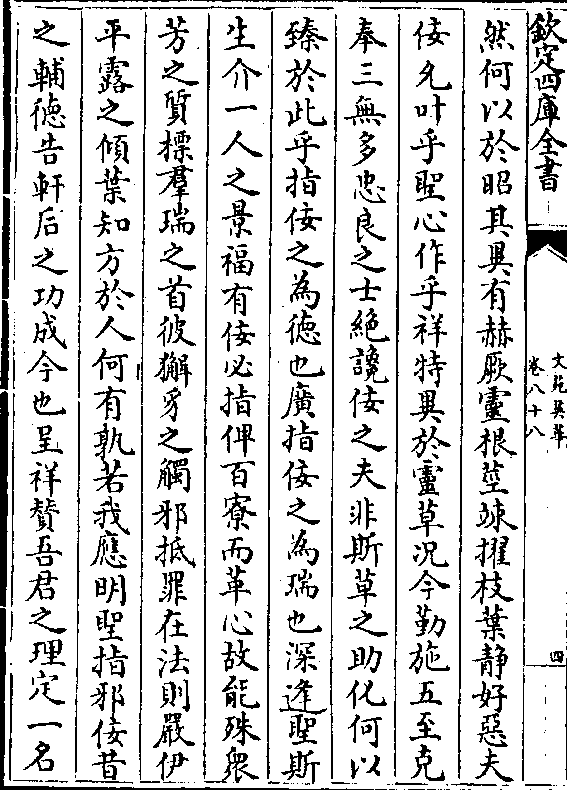 欽定四庫全書
文苑英華
卷八十八
四
然何以於昭其異有赫厥靈根莖竦擢枝葉静好惡夫
佞允叶乎聖心作乎祥特異於靈草況今勤施五至克
奉三無多忠良之士絶讒佞之夫非斯草之助化何以
臻於此乎指佞之為徳也廣指佞之為瑞也深逢聖斯
生介一人之景福有佞必指俾百寮而革心故能殊衆
芳之質標羣瑞之首彼獬豸之觸邪抵罪在法則嚴伊
平露之傾葉知方於人何有孰若我應明聖指邪佞昔
之輔徳告軒后之功成今也呈祥賛吾君之理定一名